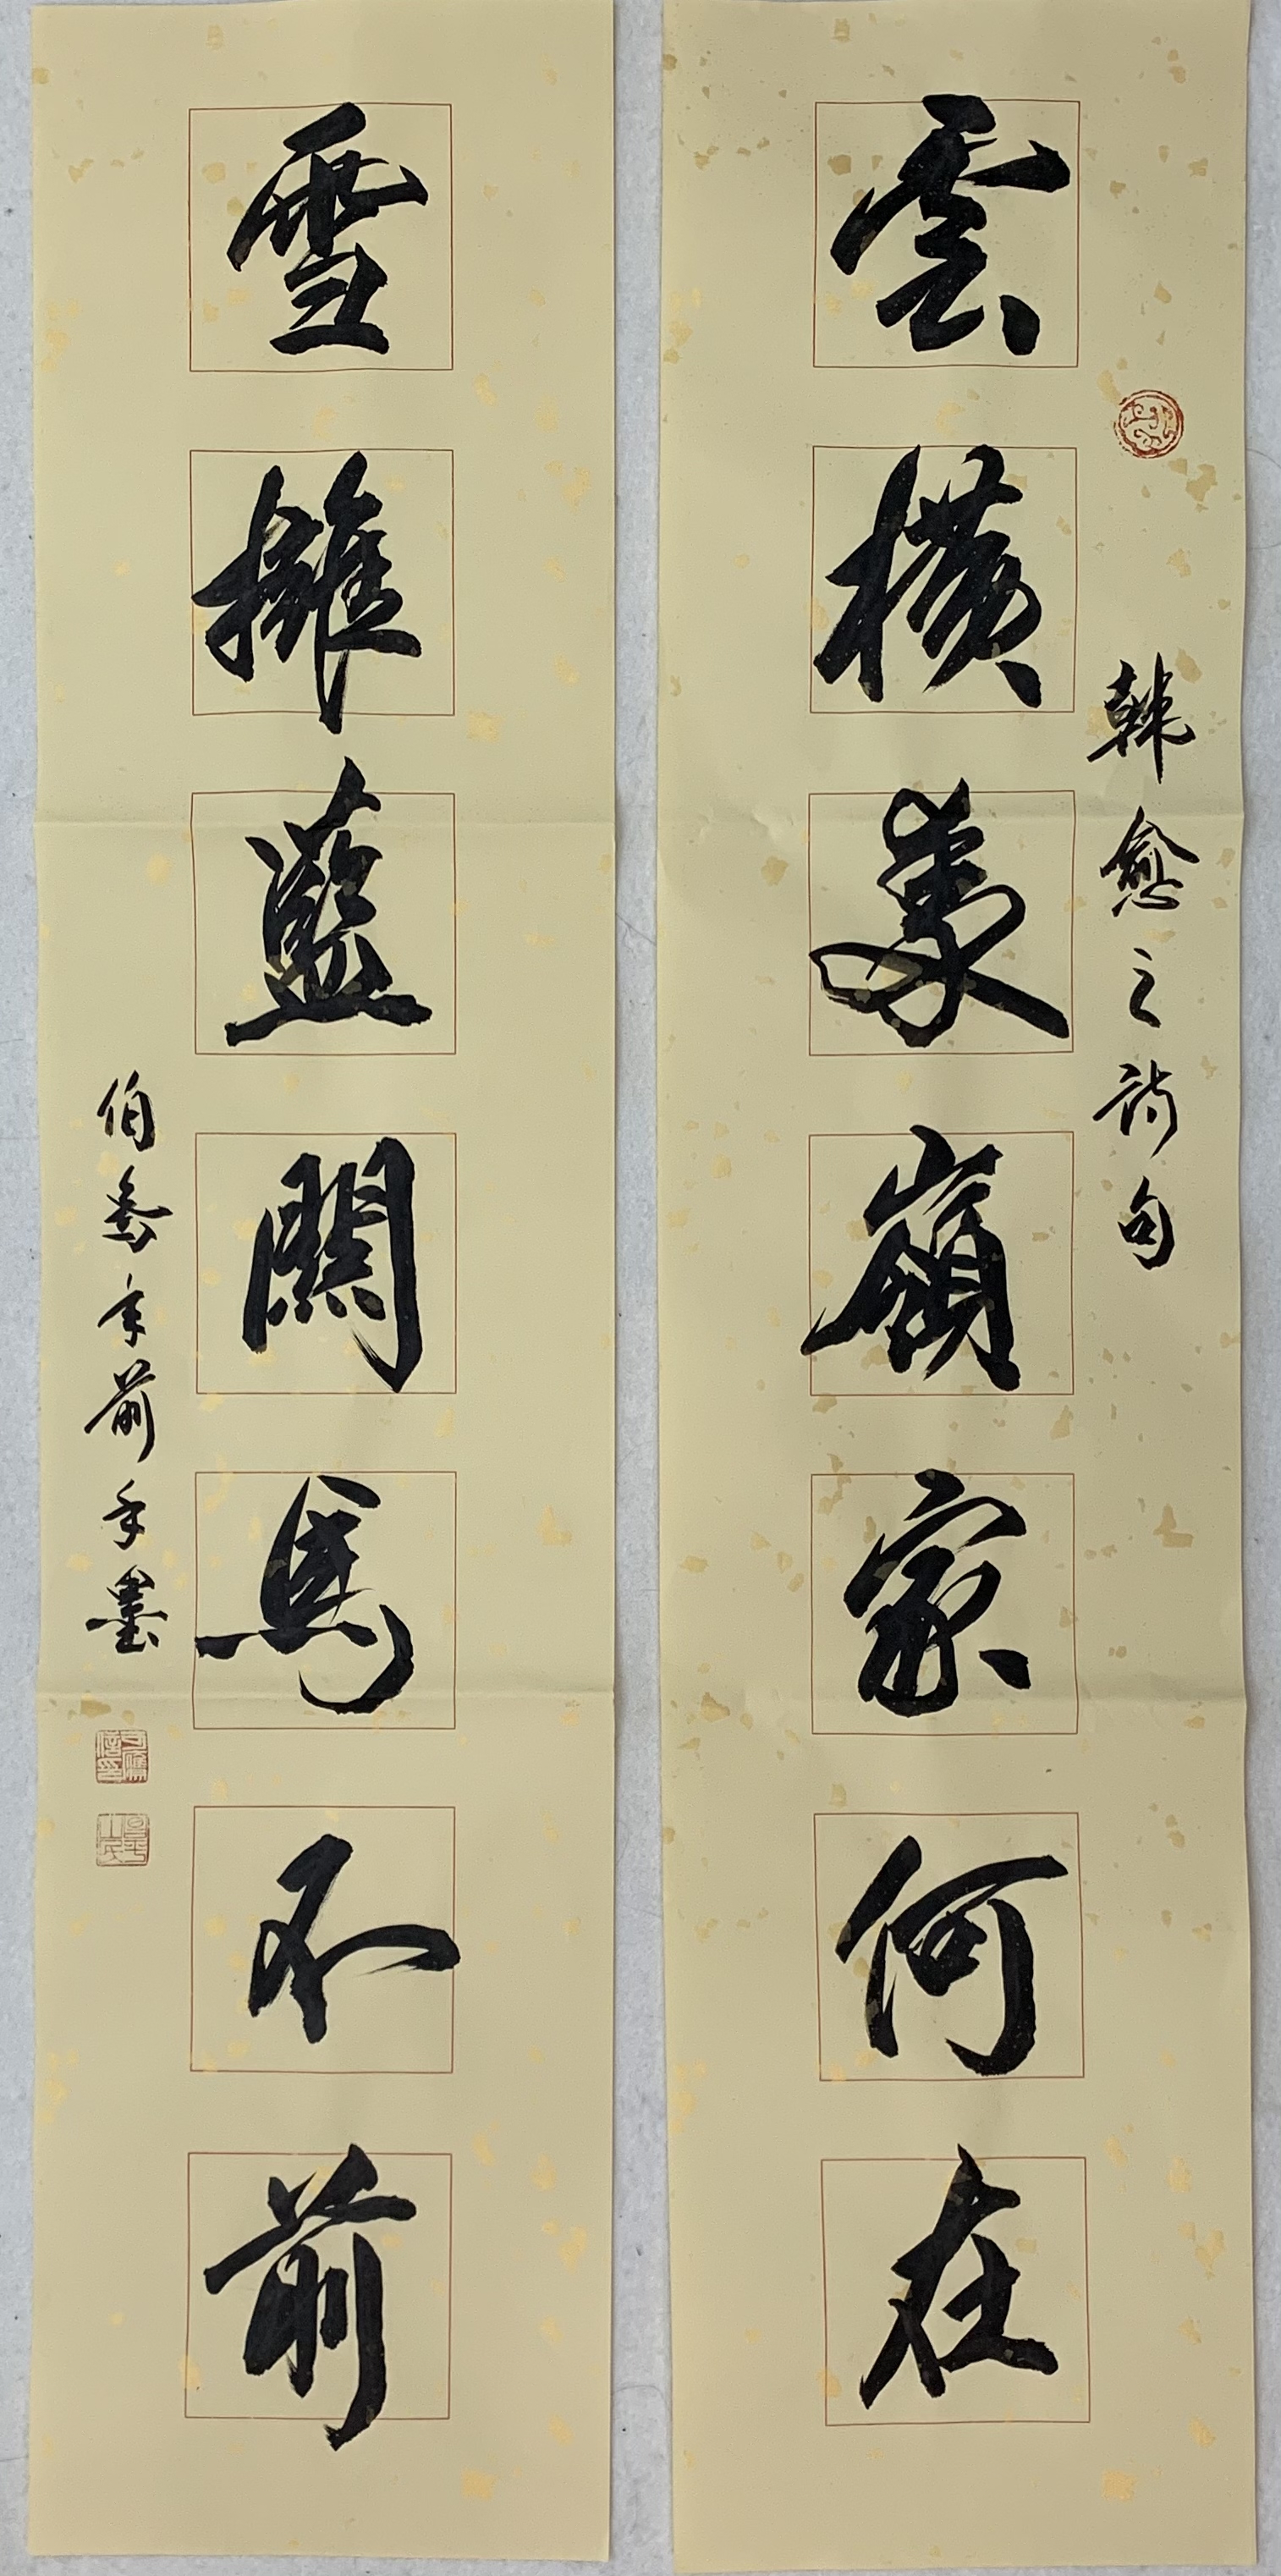 韓愈之詩句
雲橫秦嶺家何在
雪擁藍關馬不前
伯年前手墨